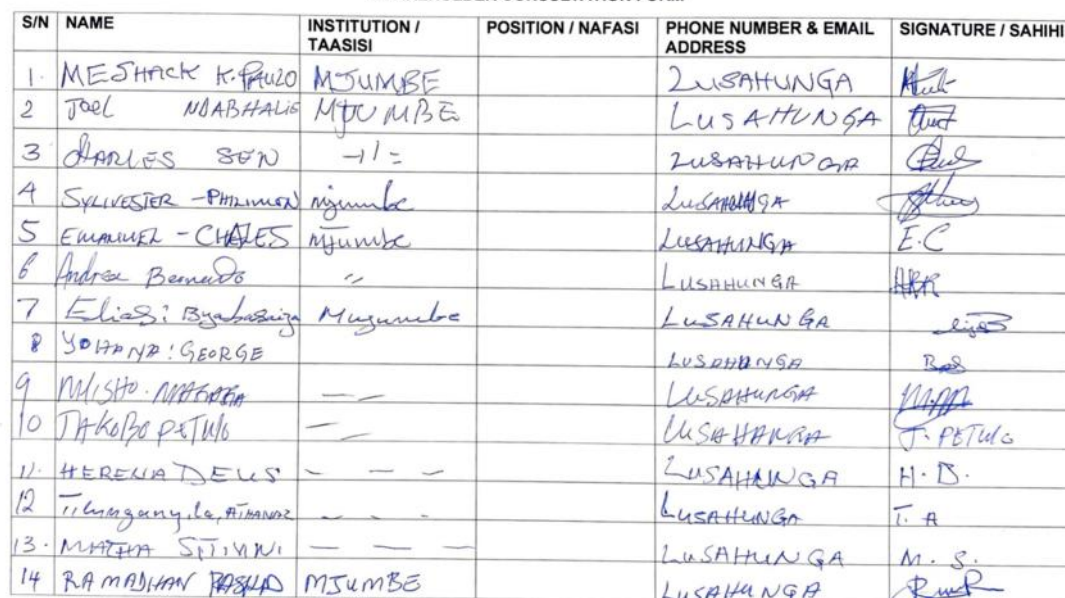 S/N NAME INSTITUTION / TAASISI POSITION / NAFASI PHONE NUMBER & EMAIL ADDRESS SIGNATURE / SAHIHI
1. MESHACK K. PAULO MJUMBE LUSAHUNGA
2 Joel NDABHALIS MJUMBE LUSAHUNGA
3 CHARLES SEN -1/= LUSAHUNGA
4 SYLIVESTER - PHILIMON mjumbe LUSAHUNGA
5 EMANUEL - CHALES mjumbe LUSAHUNGA E.C
6 Andrea Bernado " LUSAHUNGA ABR
7 Elias: Byabasaiza Mujumbe LUSAHUNGA
8 YOHANA: GEORGE LUSAHUNGA
9 MISHO. LUSAHUNGA
10 JAKOBO PETULO LUSAHANGA J. PETULO
11. HERENA DEUS - - - LUSAHUNGA H. D.
12 LUSAHUNGA T. A
13. MATHA SITIVINI - - - LUSAHUNGA M. S.
14 RAMADHAN RASHID MJUMBE LUSAHUNGA